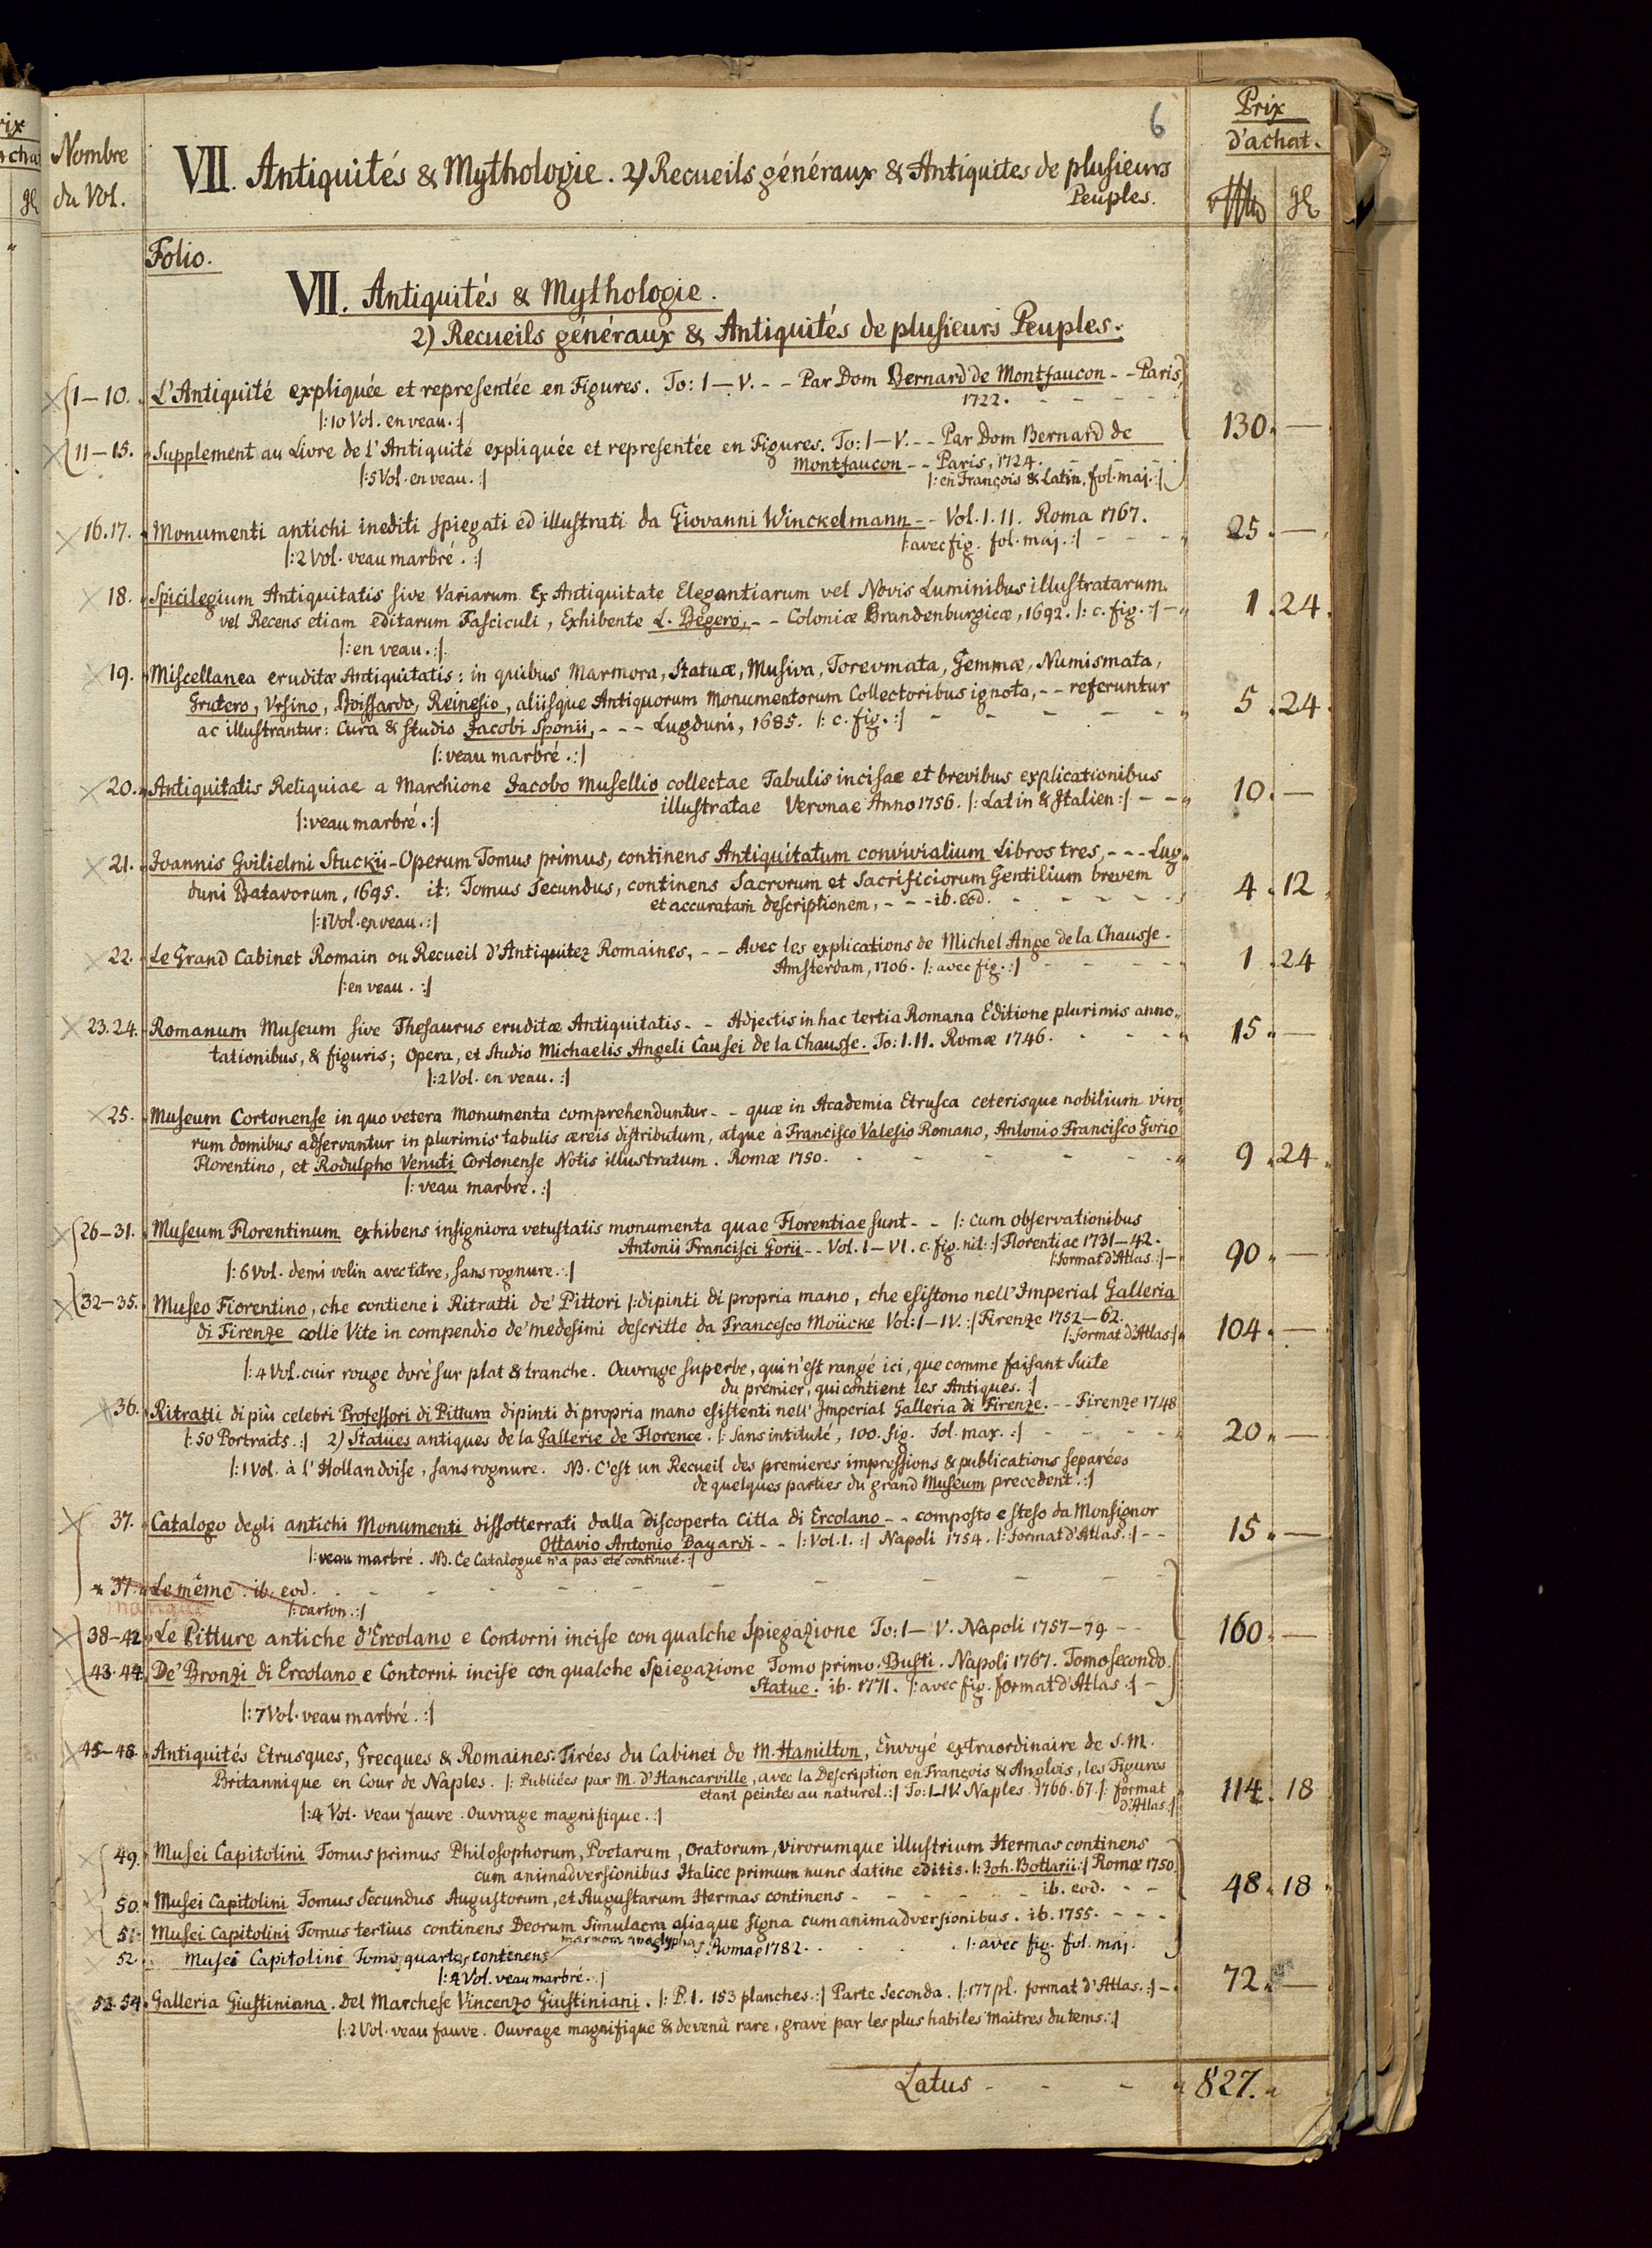 ix
acha
gl
6
Nombre
du Vol.
VII. Antiquités & Mythologie. 2) Recueils généraux & Antiquites de plusieurs
Peuples.
Prix
d'achat.
gl
Folio.
VII. Antiquités & Mythologie.
2) Recueils généraux & Antiquités de plusieurs Peuples.
1–10. L'Antiquité expliquée et representée en Figures. To: I–V. - - Par Dom Bernard de Montfaucon - - Paris,
1722.
|: 10 Vol. en veau. :|
130. —
11–15. Supplement au Livre de l'Antiquité expliquée et representée en Figures. To: I–V. - - Par Dom Bernard de
Montfaucon - - Paris, 1724.
|: 5 Vol. en veau. :| |: en François & Latin. fol. maj. :|
16.17. Monumenti antichi inediti spiegati ed illustrati da Giovanni Winckelmann - - Vol. I. II. Roma 1767. 25. —
|: 2 Vol. veau marbré. :| |: avec fig. fol. maj. :|
18. Spicilegium Antiquitatis sive Variarum Ex Antiquitate Elegantiarum vel Novis Luminibus illustratarum
vel Recens etiam editarum Fasciculi, Exhibente L. Begero, - - Coloniæ Brandenburgicæ, 1692. |: c. fig. :| 1. 24.
|: en veau. :|
19. Miscellanea eruditæ Antiquitatis: in quibus Marmora, Statuæ, Musiva, Torevmata, Gemmæ, Numismata,
Grutero, Vrsino, Boissardo, Reinesio, aliisque Antiquorum Monumentorum Collectoribus ignota, - - referuntur 5. 24.
ac illustrantur: Cura & studio Jacobi Sponii, - - - Lugduni, 1685. |: c. fig. :|
|: veau marbré. :|
20. Antiquitatis Reliquiae a Marchione Jacobo Musellio collectae Tabulis incisae et brevibus explicationibus
illustratae Veronae Anno 1756. |: Latin & Italien :| - - 10. —
|: veau marbré. :|
21. Joannis Gvilielmi Stuckii - Operum Tomus primus, continens Antiquitatum convivialium Libros tres, - - - Lug„
duni Batavorum, 1695. it: Tomus Secundus, continens Sacrorum et Sacrificiorum Gentilium brevem 4. 12.
et accuratam descriptionem, - - - ib. eod.
|: 1 Vol. en veau. :|
22. Le Grand Cabinet Romain ou Recueil d'Antiquitez Romaines, - - Avec les explications de Michel Ange de la Chausse.
Amsterdam, 1706. |: avec fig. :| 1. 24
|: en veau. :|
23.24. Romanum Museum sive Thesaurus eruditæ Antiquitatis - - Adjectis in hac tertia Romana Editione plurimis anno„
tationibus, & figuris; Opera, et Studio Michaelis Angeli Causei de la Chausse. To: I. II. Romæ 1746. 15. —
|: 2 Vol. en veau. :|
25. Museum Cortonense in quo vetera Monumenta comprehenduntur - - quæ in Academia Etrusca ceterisque nobilium viro„
rum domibus adservantur in plurimis tabulis æreis distributum, atque à Francisco Valesio Romano, Antonio Francisco Gorio
Florentino, et Rodulpho Venuti Cortonense Notis illustratum. Romæ 1750. 9. 24.
|: veau marbré. :|
26–31. Museum Florentinum exhibens insigniora vetustatis monumenta quae Florentiae sunt - - |: Cum observationibus
Antonii Francisci Gorii - - Vol. I–VI. c. fig. nit: :| Florentiae 1731–42.
|: format d'Atlas :| 90. —
|: 6 Vol. demi velin avec titre, sans rognure. :|
32–35. Museo Fiorentino, che contiene i Ritratti de' Pittori |: dipinti di propria mano, che esistono nell' Imperial Galleria
di Firenze colle Vite in compendio de' medesimi descritte da Francesco Moücke Vol: I–IV. :| Firenze 1752–62.
|: format d'Atlas :| 104. —
|: 4 Vol. cuir rouge doré sur plat & tranche. Ouvrage superbe, qui n'est rangé ici, que comme faisant Suite
du premier, qui contient les Antiques. :|
36. Ritratti di più celebri Professori di Pittura dipinti di propria mano esistenti nell' Imperial Galleria di Firenze. - - Firenze 1748
|: 50 Portraits. :| 2) Statües antiques de la Gallerie de Florence. |: Sans intitulé, 100. fig. Fol. max. :| 20. —
|: 1 Vol. à l'Hollandoise, sans rognure. NB. C'est un Recueil des premieres impressions & publications separées
de quelques parties du grand Museum precedent. :|
37. Catalogo degli antichi Monumenti dissotterrati dalla discoperta Citta di Ercolano - - composto e steso da Monsignor
Ottavio Antonio Bayardi - - |: Vol. I. :| Napoli 1754. |: format d'Atlas. :| - - 15. —
|: veau marbré. NB. Ce Catalogue n'a pas eté continué. :|
37. Le même. ib. eod.
manque |: carton. :|
38–42. Le Pitture antiche d'Ercolano e Contorni incise con qualche Spiegazione To: I–V. Napoli 1757–79. - - 160. —
43.44. De' Bronzi di Ercolano e Contorni incise con qualche Spiegazione Tomo primo. Busti. Napoli 1767. Tomo secondo.
Statue. ib. 1771. |: avec fig. format d'Atlas :|
|: 7 Vol. veau marbré. :|
45–48. Antiquités Etrusques, Grecques & Romaines. Tirées du Cabinet de M. Hamilton, Envoyé extraordinaire de S. M.
Britannique en Cour de Naples. |: Publiées par M. d'Hancarville, avec la Description en François & Anglois, les Figures
etant peintes au naturel. :| To: I–IV. Naples. 1766. 67. |: format
d'Atlas. :| 114. 18
|: 4 Vol. veau fauve. Ouvrage magnifique. :|
49. Musei Capitolini Tomus primus Philosophorum, Poetarum, Oratorum, Virorumque illustrium Hermas continens
cum animadversionibus Italice primum nunc Latine editis. |: Joh. Bottarii :| Romæ 1750.
50. Musei Capitolini Tomus Secundus Augustorum, et Augustarum Hermas continens - - ib. eod. - - 48. 18
51. Musei Capitolini Tomus tertius continens Deorum Simulacra aliaque Signa cum animadversionibus. ib. 1755. - - -
marmora anaglypha
52. Musei Capitolini Tomus quartus continens Romae 1782. |: avec fig. fol. maj.
|: 4 Vol. veau marbré. :|
53.54. Galleria Giustiniana. Del Marchese Vincenzo Giustiniani. |: P. I. 153 planches. :| Parte Seconda. |: 177 pl. format d'Atlas. :| 72. —
|: 2 Vol. veau fauve. Ouvrage magnifique & devenû rare, gravé par les plus habiles Maitres du tems. :|
Latus - - - 827.